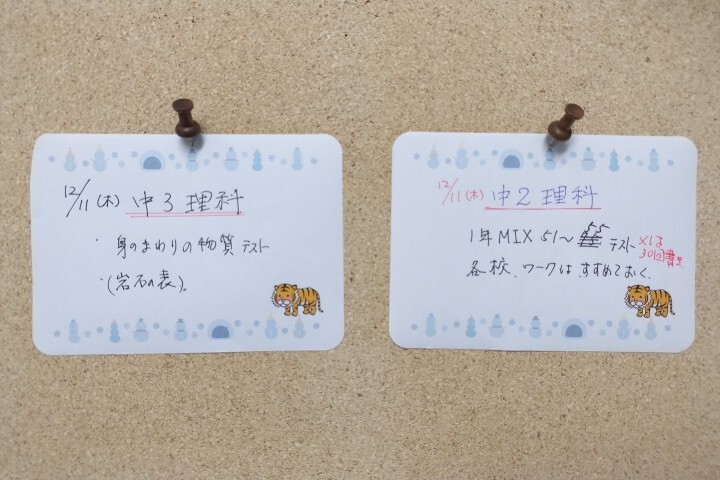 12/11(木) 中3理科
・身のまわりの物質テスト
・(岩石の表)。
12/11(木) 中2理科
1年MIX 51～55 テスト ×は
30回書き
各校、ワークは、すすめておく。